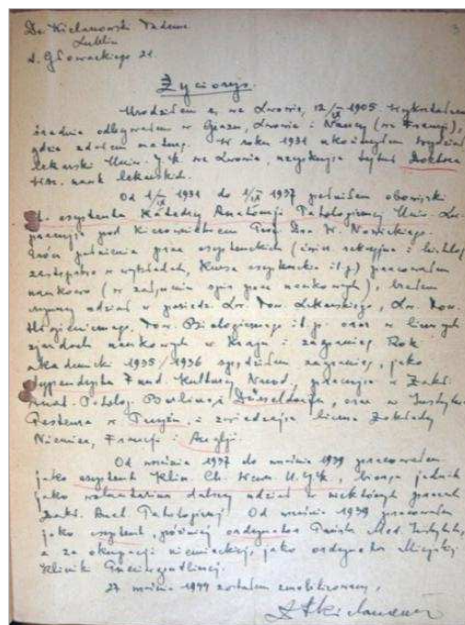 Dr. Kielanowski Tadeusz
Lublin
ul. Głowackiego 21
Życiorys.
Urodziłem się we Lwowie, 12/ 1905. Wykształcenie
średnie odbywałem w Lwowie i Nancy (we Francji),
gdzie zdałem maturę. W roku 1931 ukończyłem wydział
lekarski Uniw. J.K. we Lwowie, uzyskując tytuł Doktora
nauk lekarskich.
Od 1/ 1931 do 1/ 1937 pełniłem obowiązki
st. asystenta Katedry Anatomji Patologicznej Uniw. Lw.
pracując pod kierownictwem Prof. Dra W. Nowickiego.
Prócz pełnienia prac asystenckich
zastępstwo w wykładach, i t.p.) pracowałem
naukowo (w załączeniu spis prac naukowych), brałem
czynny udział w Lw. Tow. Lekarskiego, Lw. Tow.
Higienicznego, Tow. Biologicznego i t.p. oraz w licznych
zjazdach naukowych w kraju i zagranicą. Rok
akademicki 1935/1936 spędziłem zagranicą, jako
stypendysta Fund. Kultury Narod., pracując w Zakł.
Anat. Patolog. Berlina i Düsseldorfu, oraz w Instytucie
Pasteura w Paryżu, i zwiedzając liczne Zakłady
Niemiec, Francji i Anglji.
Od września 1937 do września 1939 pracowałem
jako asystent Klin. Ch. Wewn. U.J.K., biorąc jednak
jako wolontariusz dalszy udział w niektórych pracach
Zakł. Anat. Patologicznej. Od września 1939 pracowałem
jako asystent, później ordynator Państw. Med. Instytutu,
a za okupacji niemieckiej, jako ordynator Miejskiej
Kliniki Przeciwgruźliczej.
27 1944 zostałem zmobilizowany,